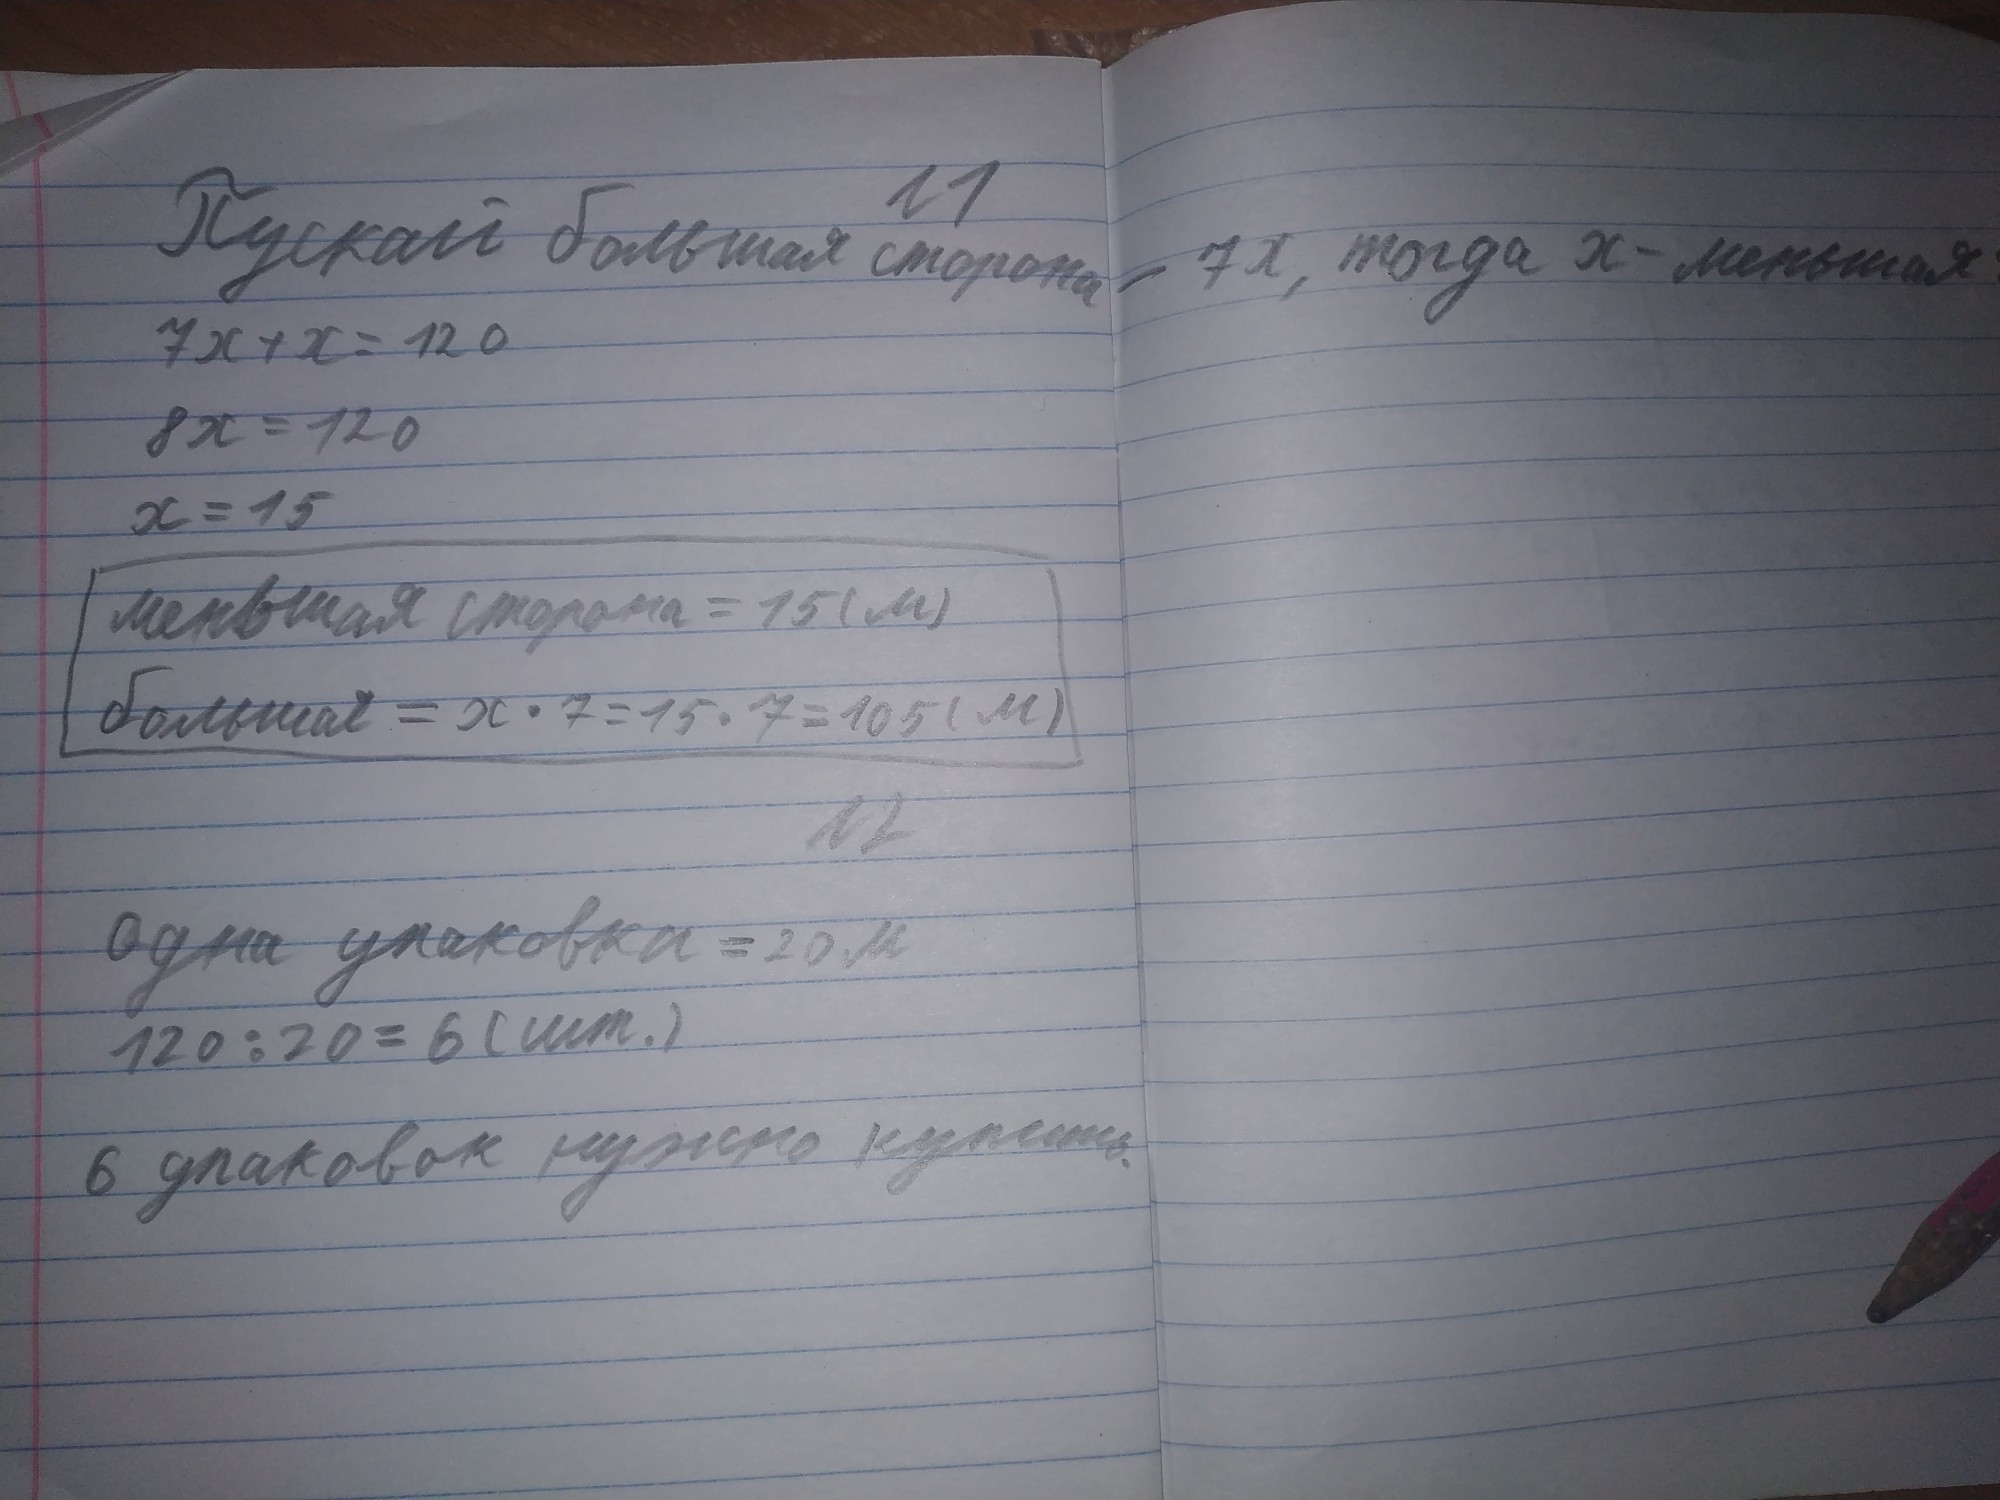 11
Пускай большая сторона - 7x, тогда x - меньшая
7x + x = 120
8x = 120
x = 15
меньшая сторона = 15 (м)
большая = x · 7 = 15 · 7 = 105 (м)
12
Одна упаковка = 20 м
120 : 20 = 6 (шт.)
6 упаковок нужно купить.